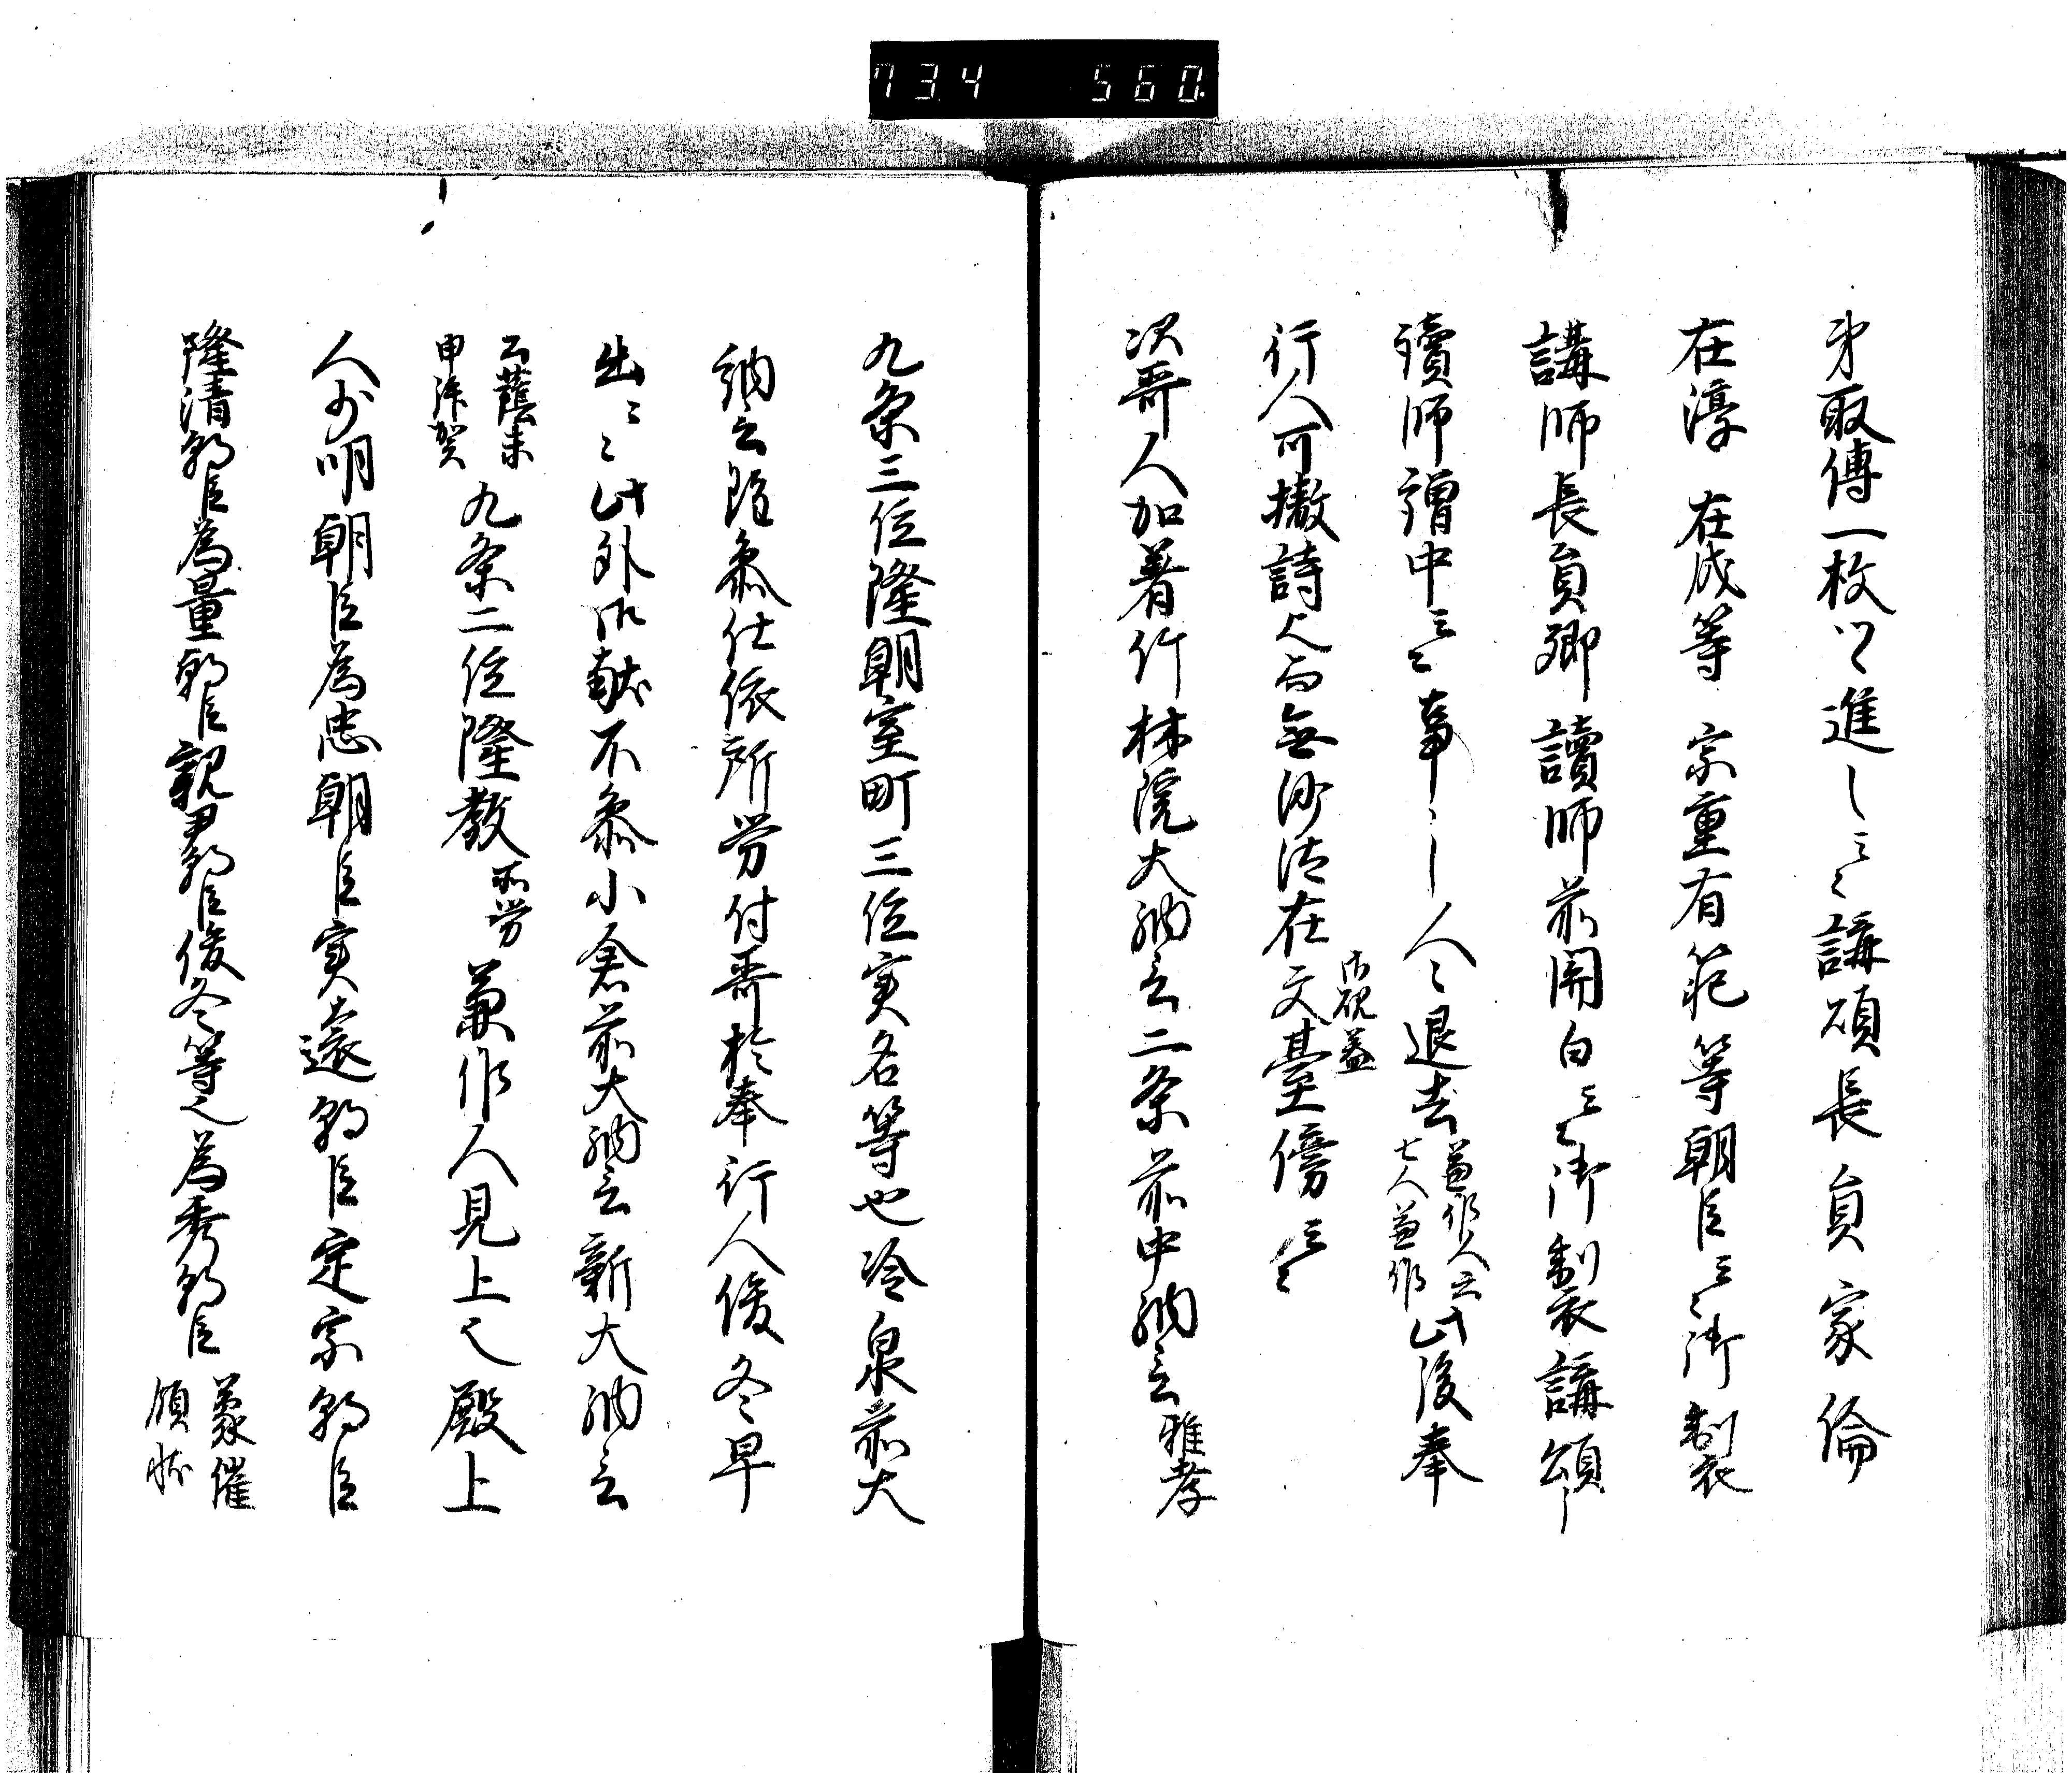 734 560
弟取傳一枚ツヽ進之云々講頌長員家倫
在淳在成等宗重有範等朝臣云々御製
講師長員卿讀師前関白云々御製講頌
讀師詔中云々事了人々退去兼作人云七人兼作此後奉
行人可撤詩之處無沙汰在文臺傍云々
御硯蓋
次哥人加着竹林院大納言二条前中納言雅孝
九条三位隆朝室町三位実名等也冷泉前大
納言雖参仕依所労付哥於奉行人俊冬早
出云々此外所献不参小倉前大納言新大納言
公蔭未申拝賀九条二位隆教所労兼作人見上之殿上
人少明朝臣為忠朝臣実遠朝臣定宗朝臣
隆清朝臣為量朝臣親尹朝臣俊冬等也為秀朝臣蒙催領状